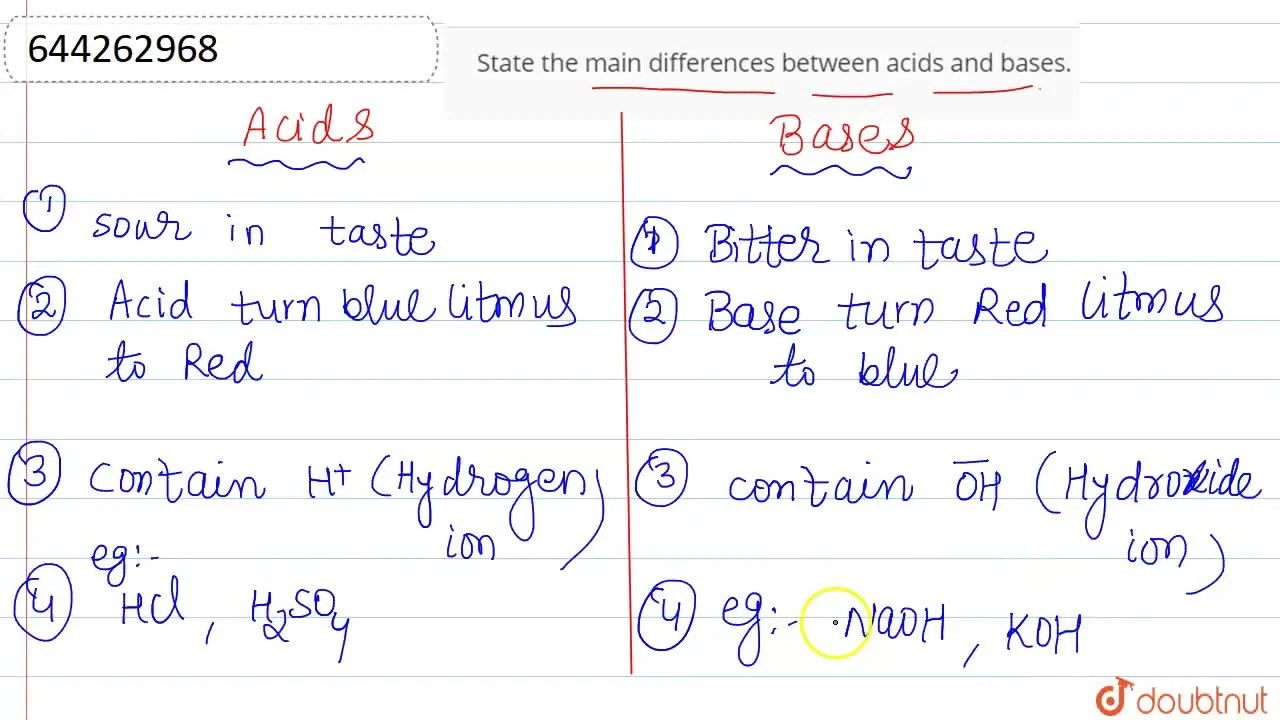 644262968
State the main differences between acids and bases.
Acids
① sour in taste
② Acid turn blue litmus
to Red
③ contain H+ (Hydrogen
ion)
eg:-
④ HCl, H₂SO₄
Bases
① Bitter in taste
② Base turn Red litmus
to blue
③ contain O̅H (Hydroxide
ion)
④ eg:- NaOH, KOH
doubtnut